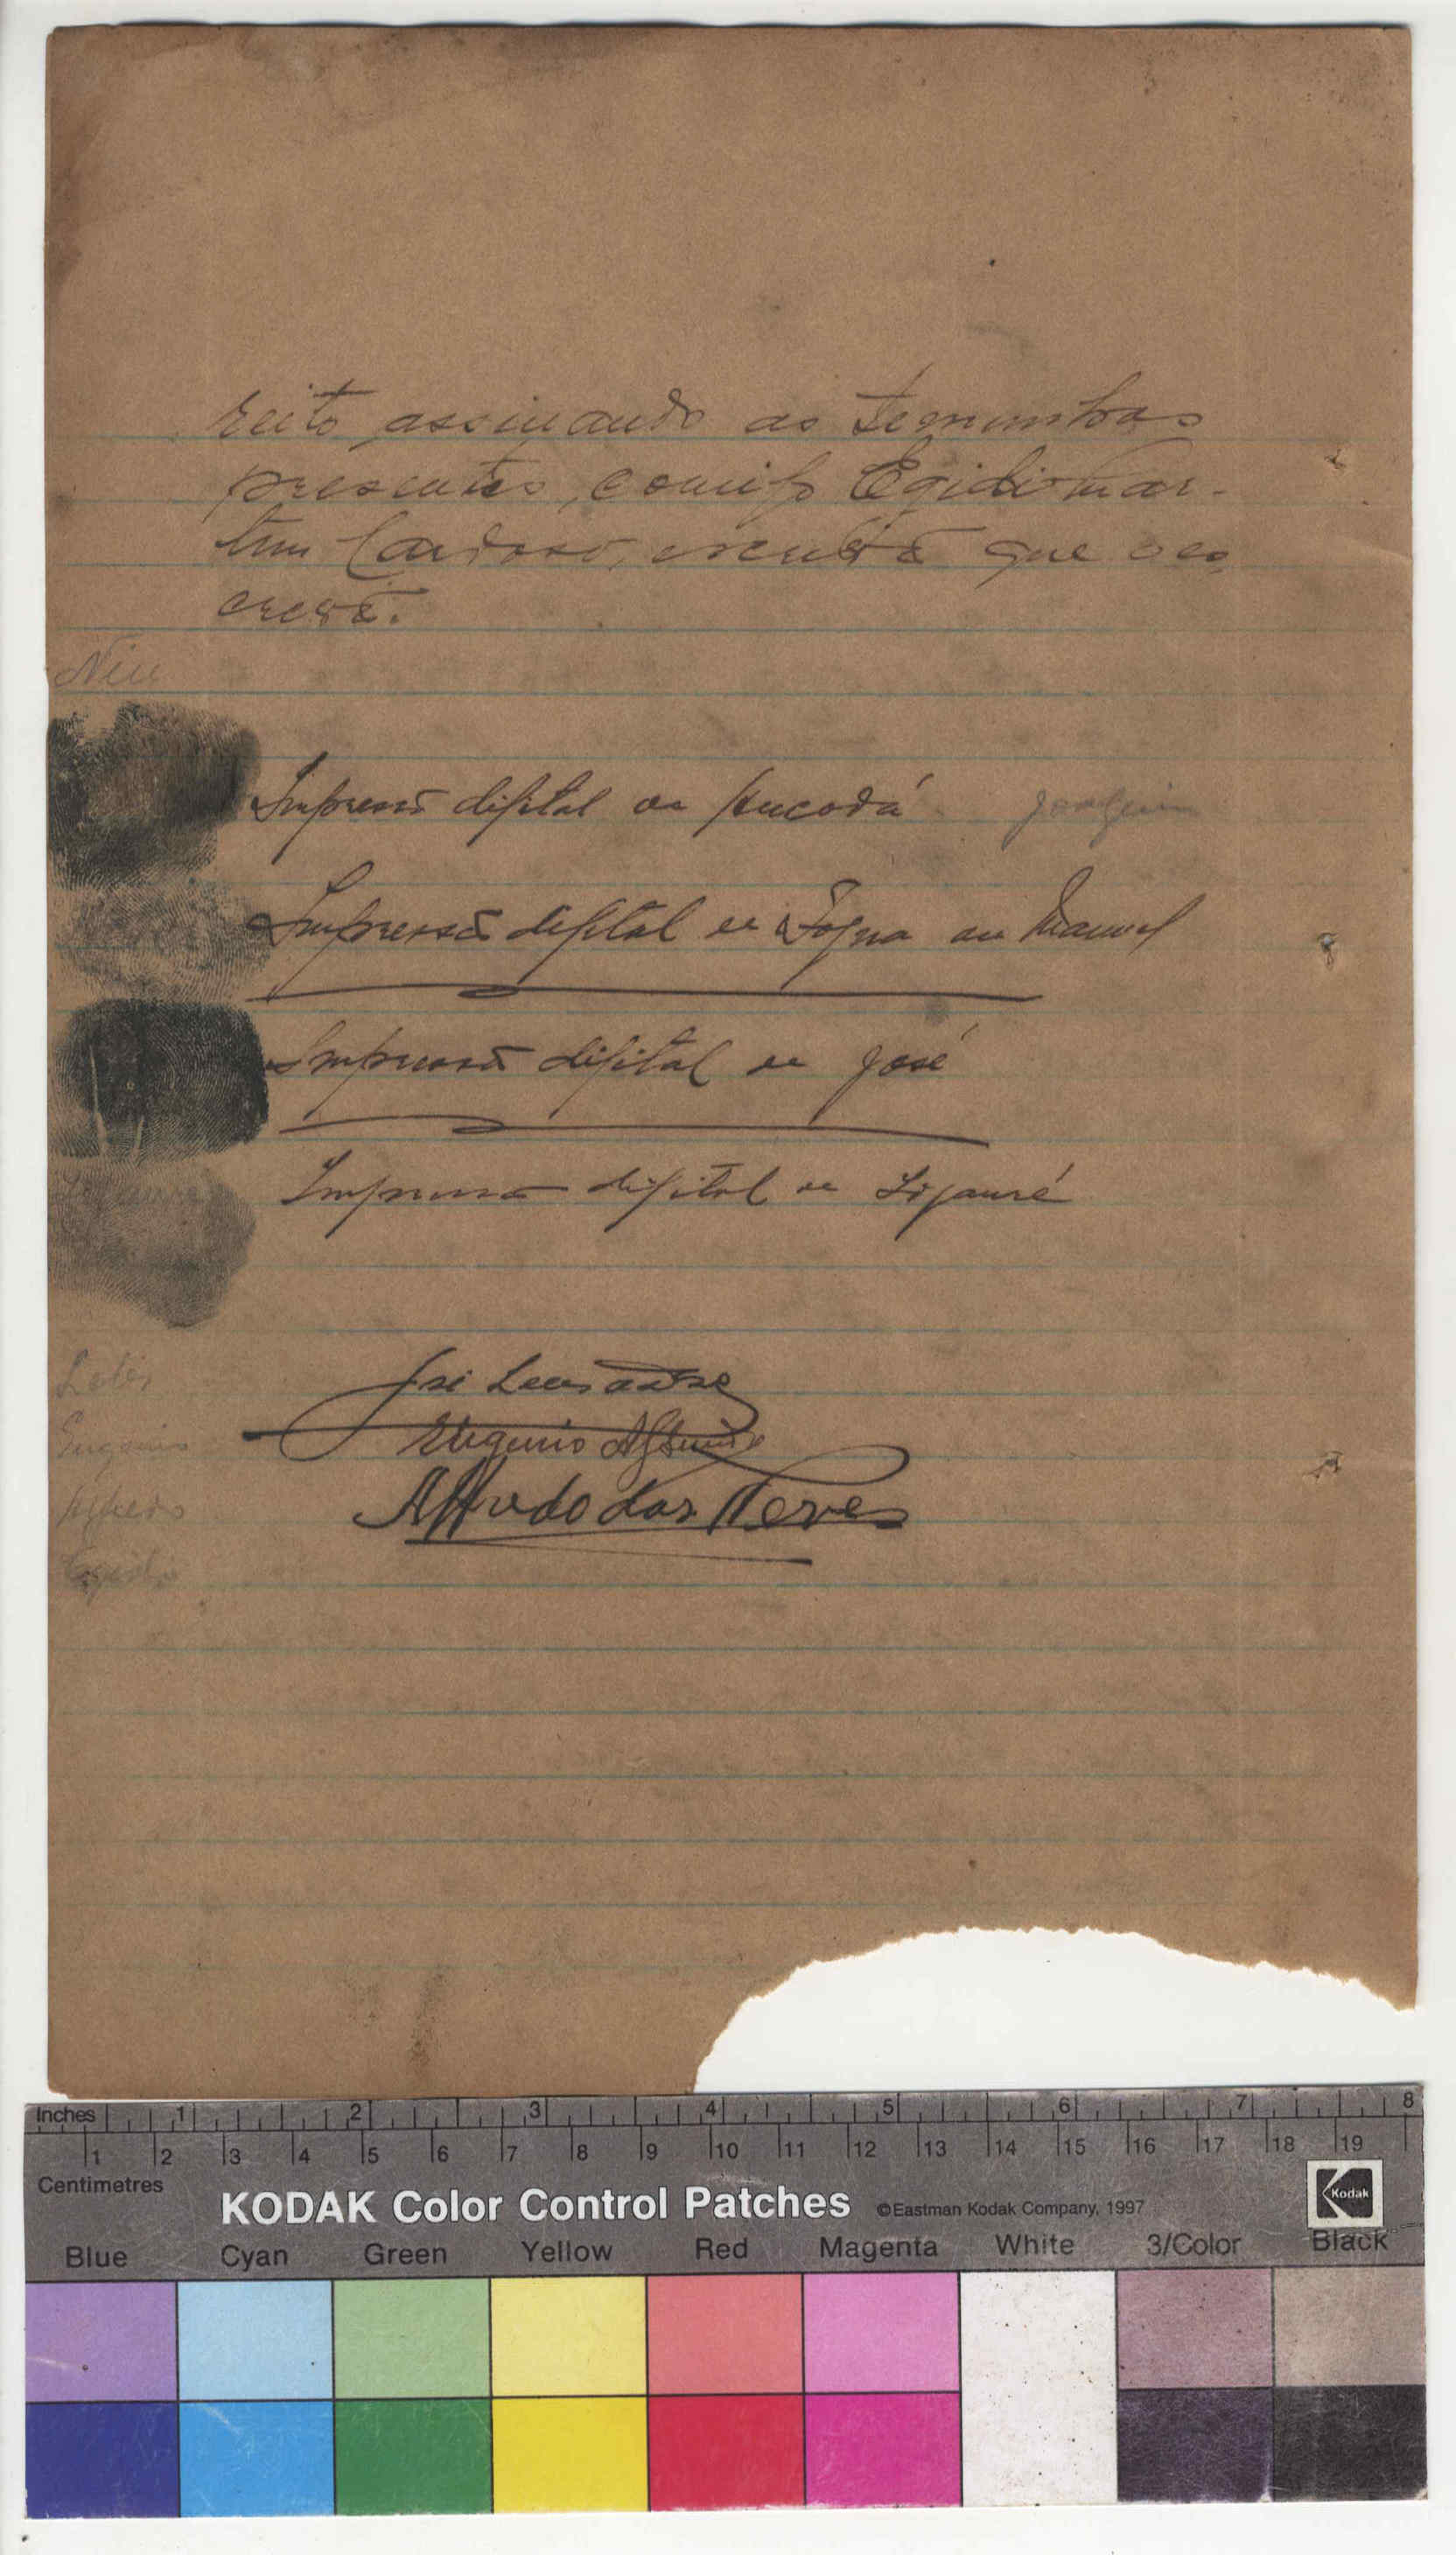 reito assinando as temunhas
presentes, comigo Egidio Mar-
tins Cardoso, escrivão que o es-
crevo.
Impressão digital de Hucodá Joaquim
Impressão digital de ou Manuel
Impressão digital de José
Impressão digital de
José
Eugenio
Alfredo das Neves
Eugenio
Alfredo
Egidio
Inches 1 2 3 4 5 6 7 8
1 2 3 4 5 6 7 8 9 10 11 12 13 14 15 16 17 18 19
Centimetres
KODAK Color Control Patches ©Eastman Kodak Company, 1997 Kodak
Blue Cyan Green Yellow Red Magenta White 3/Color Black